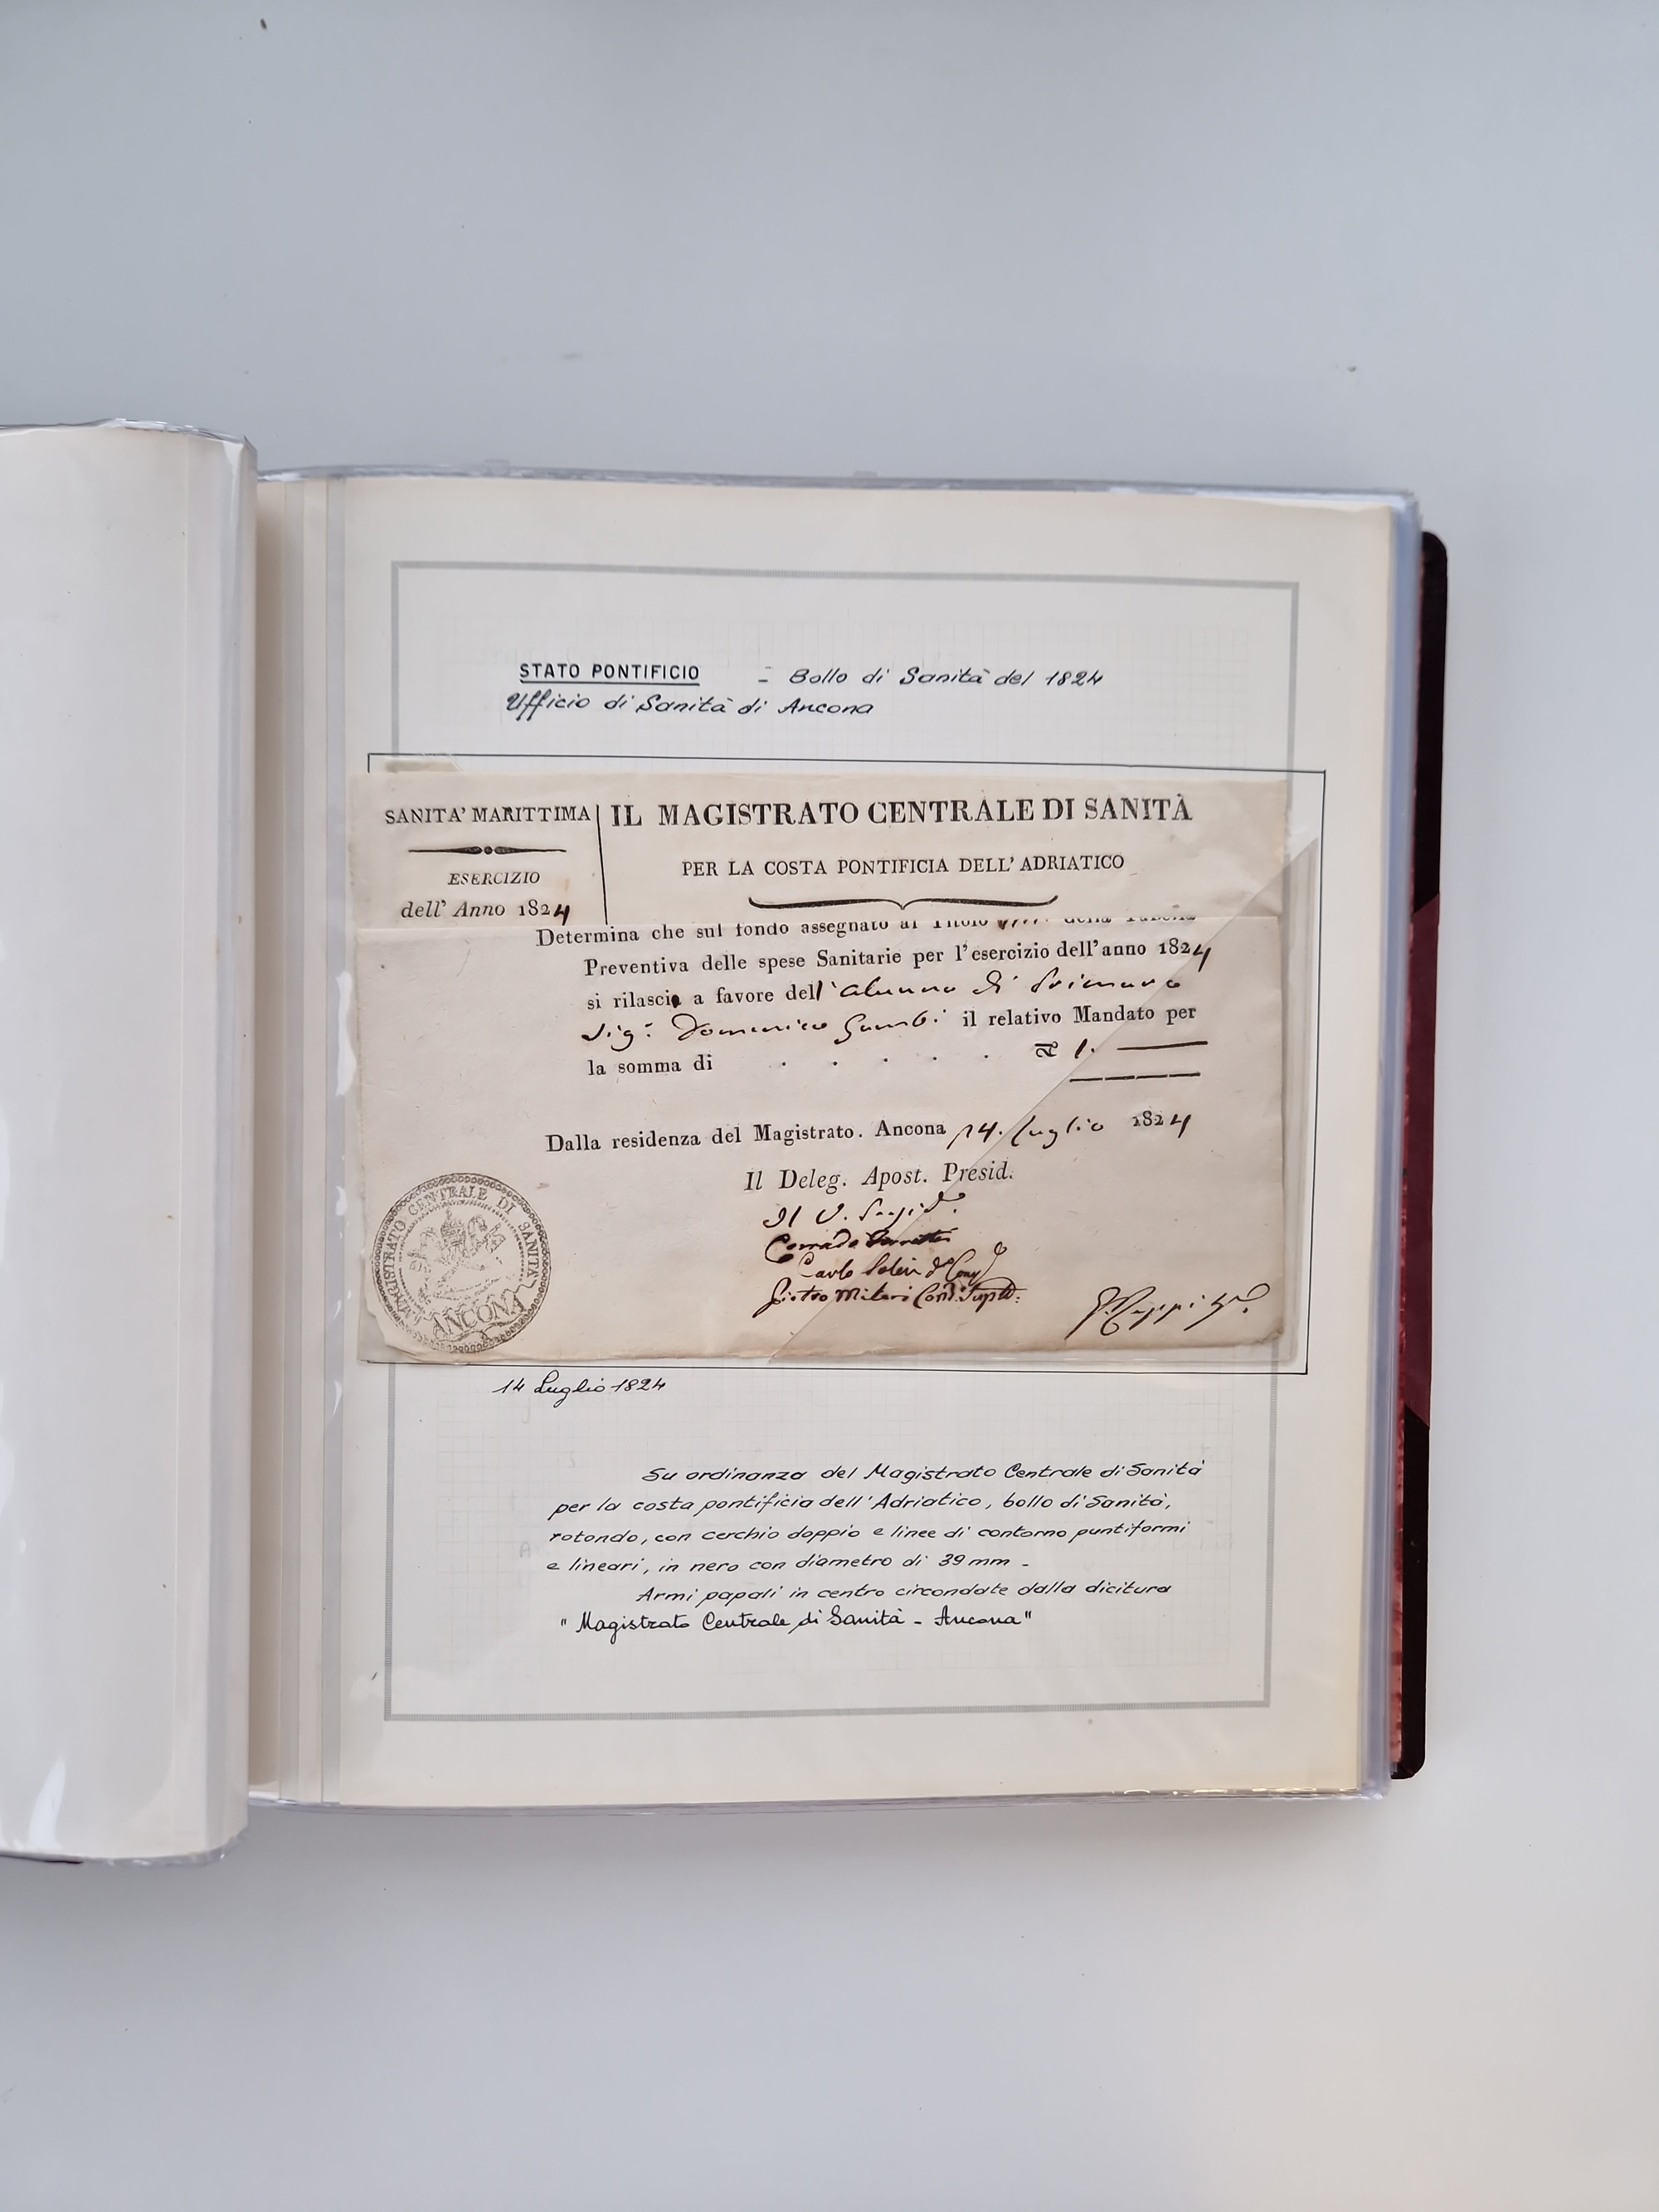 STATO PONTIFICIO - Bollo di Sanità del 1824
Ufficio di Sanità di Ancona
SANITA' MARITTIMA
ESERCIZIO
dell' Anno 1824
IL MAGISTRATO CENTRALE DI SANITÀ
PER LA COSTA PONTIFICIA DELL' ADRIATICO
Determina che sul fondo assegnato al Titolo della Tabella
Preventiva delle spese Sanitarie per l'esercizio dell'anno 1824
si rilascia a favore dell'alunno di Primaro
Sig. Domenico Gambi il relativo Mandato per
la somma di . . . . . 1. —
Dalla residenza del Magistrato. Ancona 14. luglio 1824
Il Deleg. Apost. Presid.
Il V.
Corrado
Carlo
Pietro Milesi
MAGISTRATO CENTRALE DI SANITÀ
ANCONA
14 Luglio 1824
Su ordinanza del Magistrato Centrale di Sanità
per la costa pontificia dell'Adriatico, bollo di Sanità,
rotondo, con cerchio doppio e linee di contorno puntiformi
e lineari, in nero con diametro di 39 mm -
Armi papali in centro circondate dalla dicitura
"Magistrato Centrale di Sanità - Ancona"